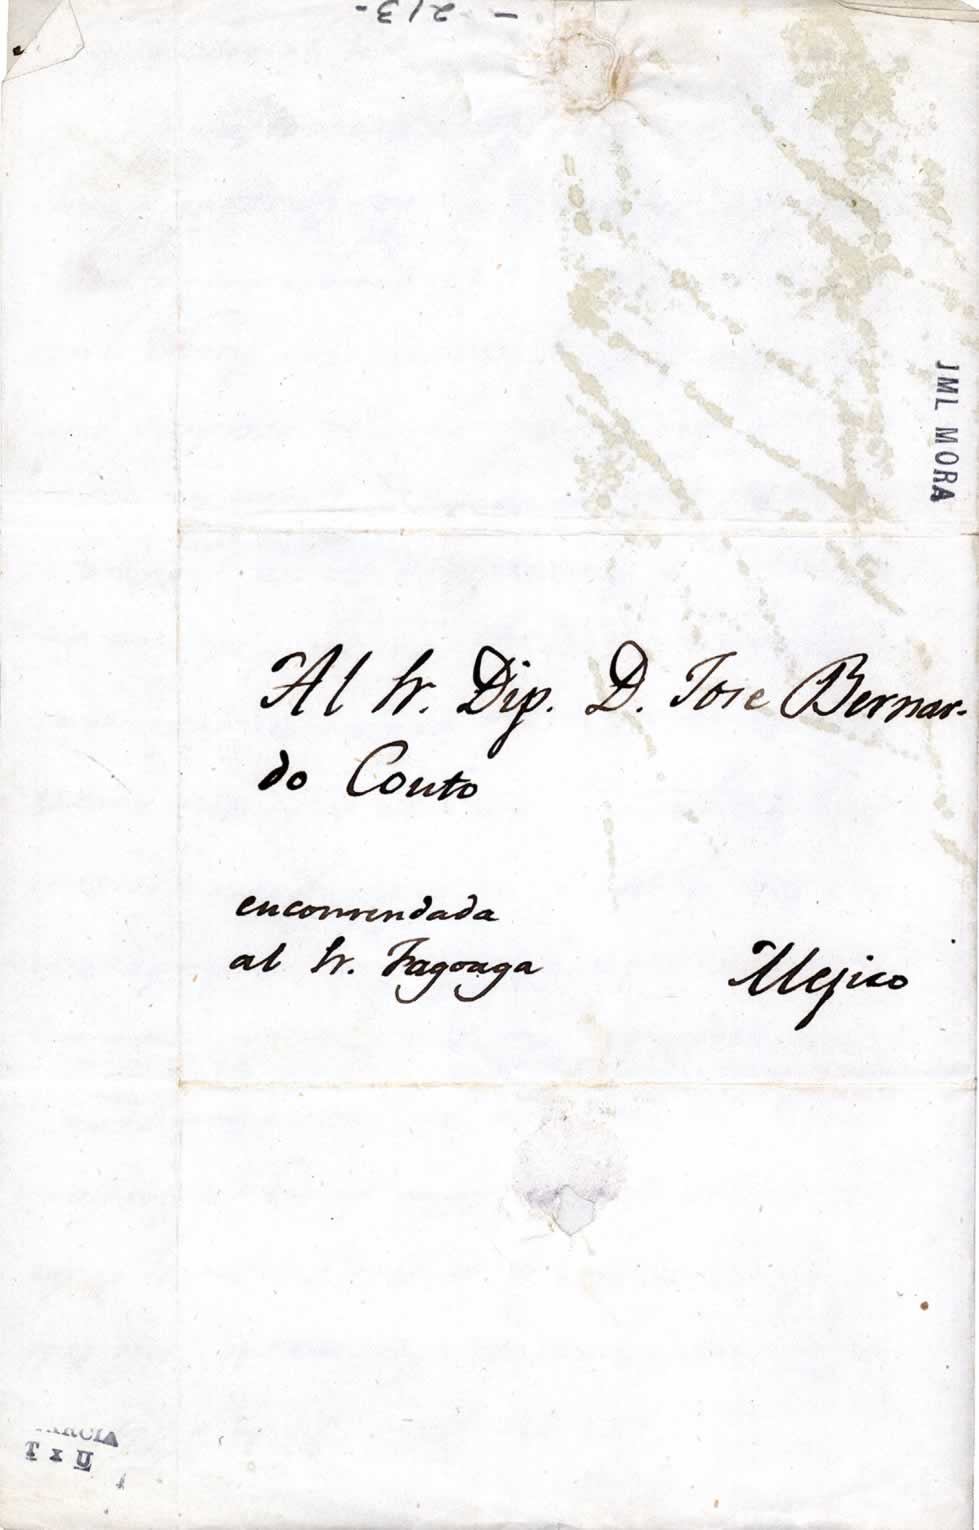 -213-
JML MORA
Al Sr. Dip. D. Jose Bernar-
do Couto
encomendada
al Sr. Fagoaga
Mejico
GARCIA
T x U